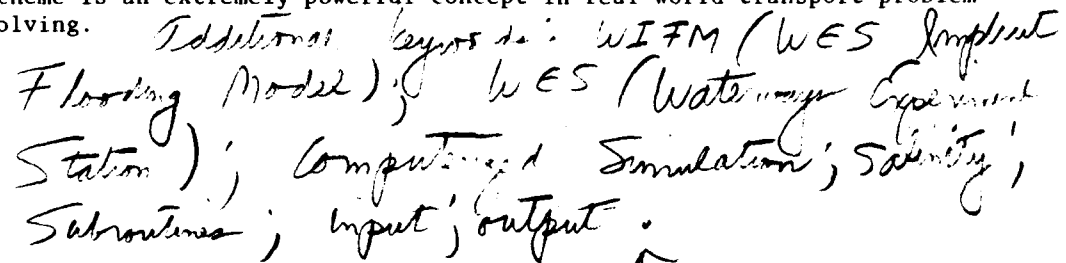 scheme is an extremely powerful concept in real world transport problem
olving. Additional keywords: WIFM (WES Implicit
Flooding Model); WES (Waterways Experiment
Station); Computerized Simulation; Salinity;
Subroutines; input; output.